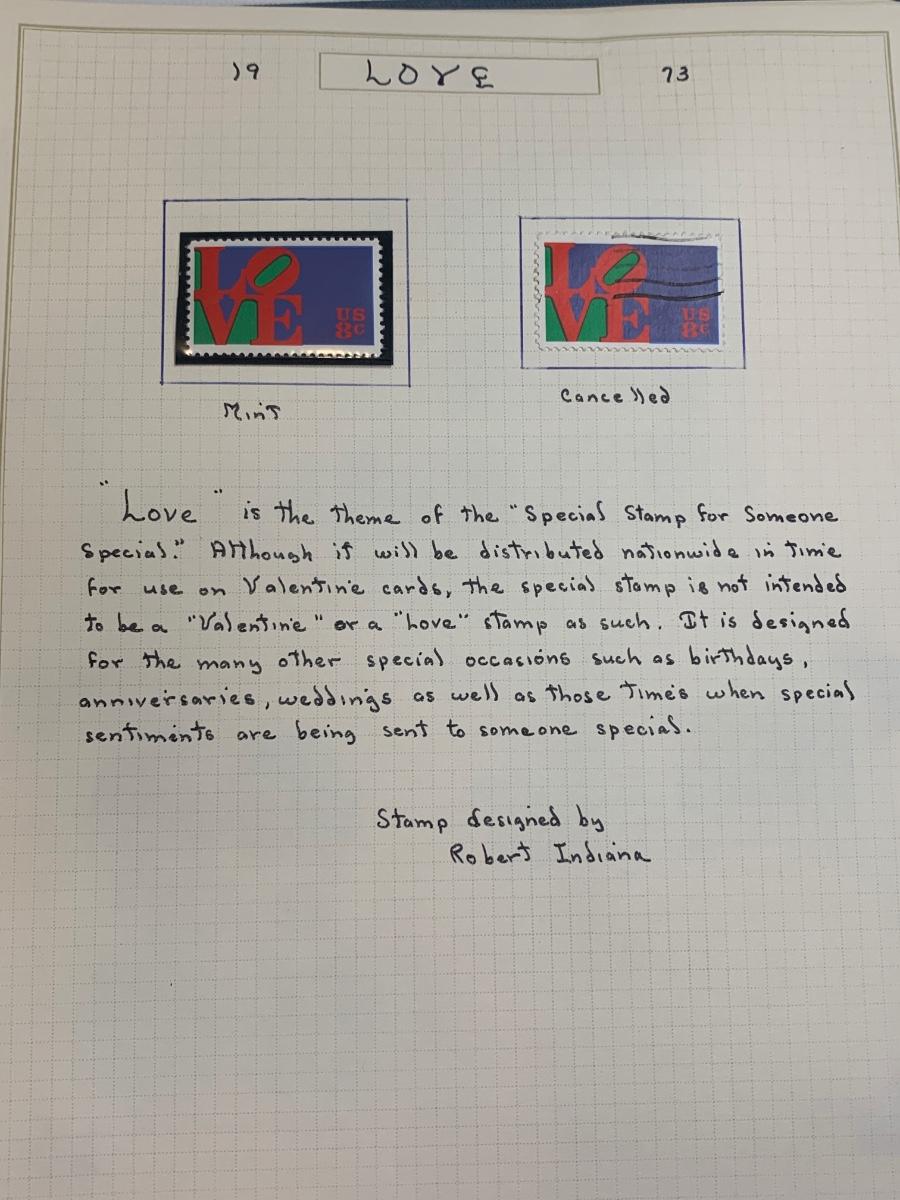 19 LOVE 73
LO
VE
US
8c
LO
VE
US
8c
Mint
Cancelled
"Love" is the theme of the "Special Stamp for Someone
Special." Although it will be distributed nationwide in time
for use on Valentine cards, the special stamp is not intended
to be a "Valentine" or a "Love" stamp as such. It is designed
for the many other special occasions such as birthdays,
anniversaries, weddings as well as those times when special
sentiments are being sent to someone special.
Stamp designed by
Robert Indiana